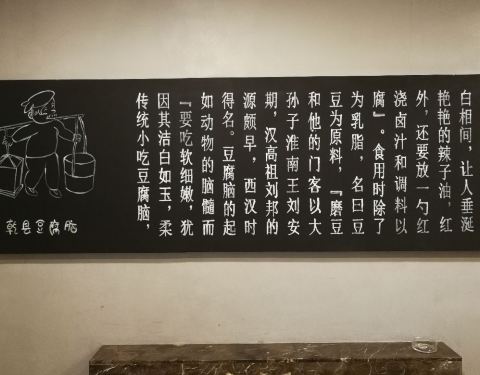 传统小吃豆腐脑，
因其洁白如玉，柔
『要吃软细嫩，犹
如动物的脑髓而
得名。豆腐脑的起
源颇早，西汉时
期，汉高祖刘邦的
孙子淮南王刘安
和他的门客以大
豆为原料，『磨豆
为乳脂，名曰豆
腐』。食用时除了
浇卤汁和调料以
外，还要放一勺红
艳艳的辣子油，红
白相间，让人垂涎
乾县豆腐脑